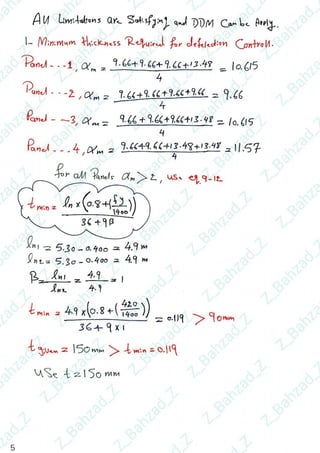 All Limitations are Satisfying and DDM can be Apply.
1- Minimum thickness Required for deflection Controll.
Panel - - -1, αm = 9.66+9.66+9.66+13.48 / 4 = 10.615
Panel - - -2, αm = 9.66+9.66+9.66+9.66 / 4 = 9.66
Panel - - -3, αm = 9.66+9.66+9.66+13.48 / 4 = 10.615
Panel - - - 4, αm = 9.66+9.66+13.48+13.48 / 4 = 11.57
for all Panels αm > 2, use eq. 9-12
t min = ln x (0.8+(fy/1400)) / 36+9β
ln1 = 5.30 - 0.400 = 4.9 m
ln2 = 5.30 - 0.400 = 4.9 m
β = ln1 / ln2 = 4.9 / 4.9 = 1
t min = 4.9 x (0.8+(420/1400)) / 36+9x1 = 0.119 > 90mm
t given = 150mm > t min = 0.119
Use t = 150 mm
5
Z_Bahzad_Z